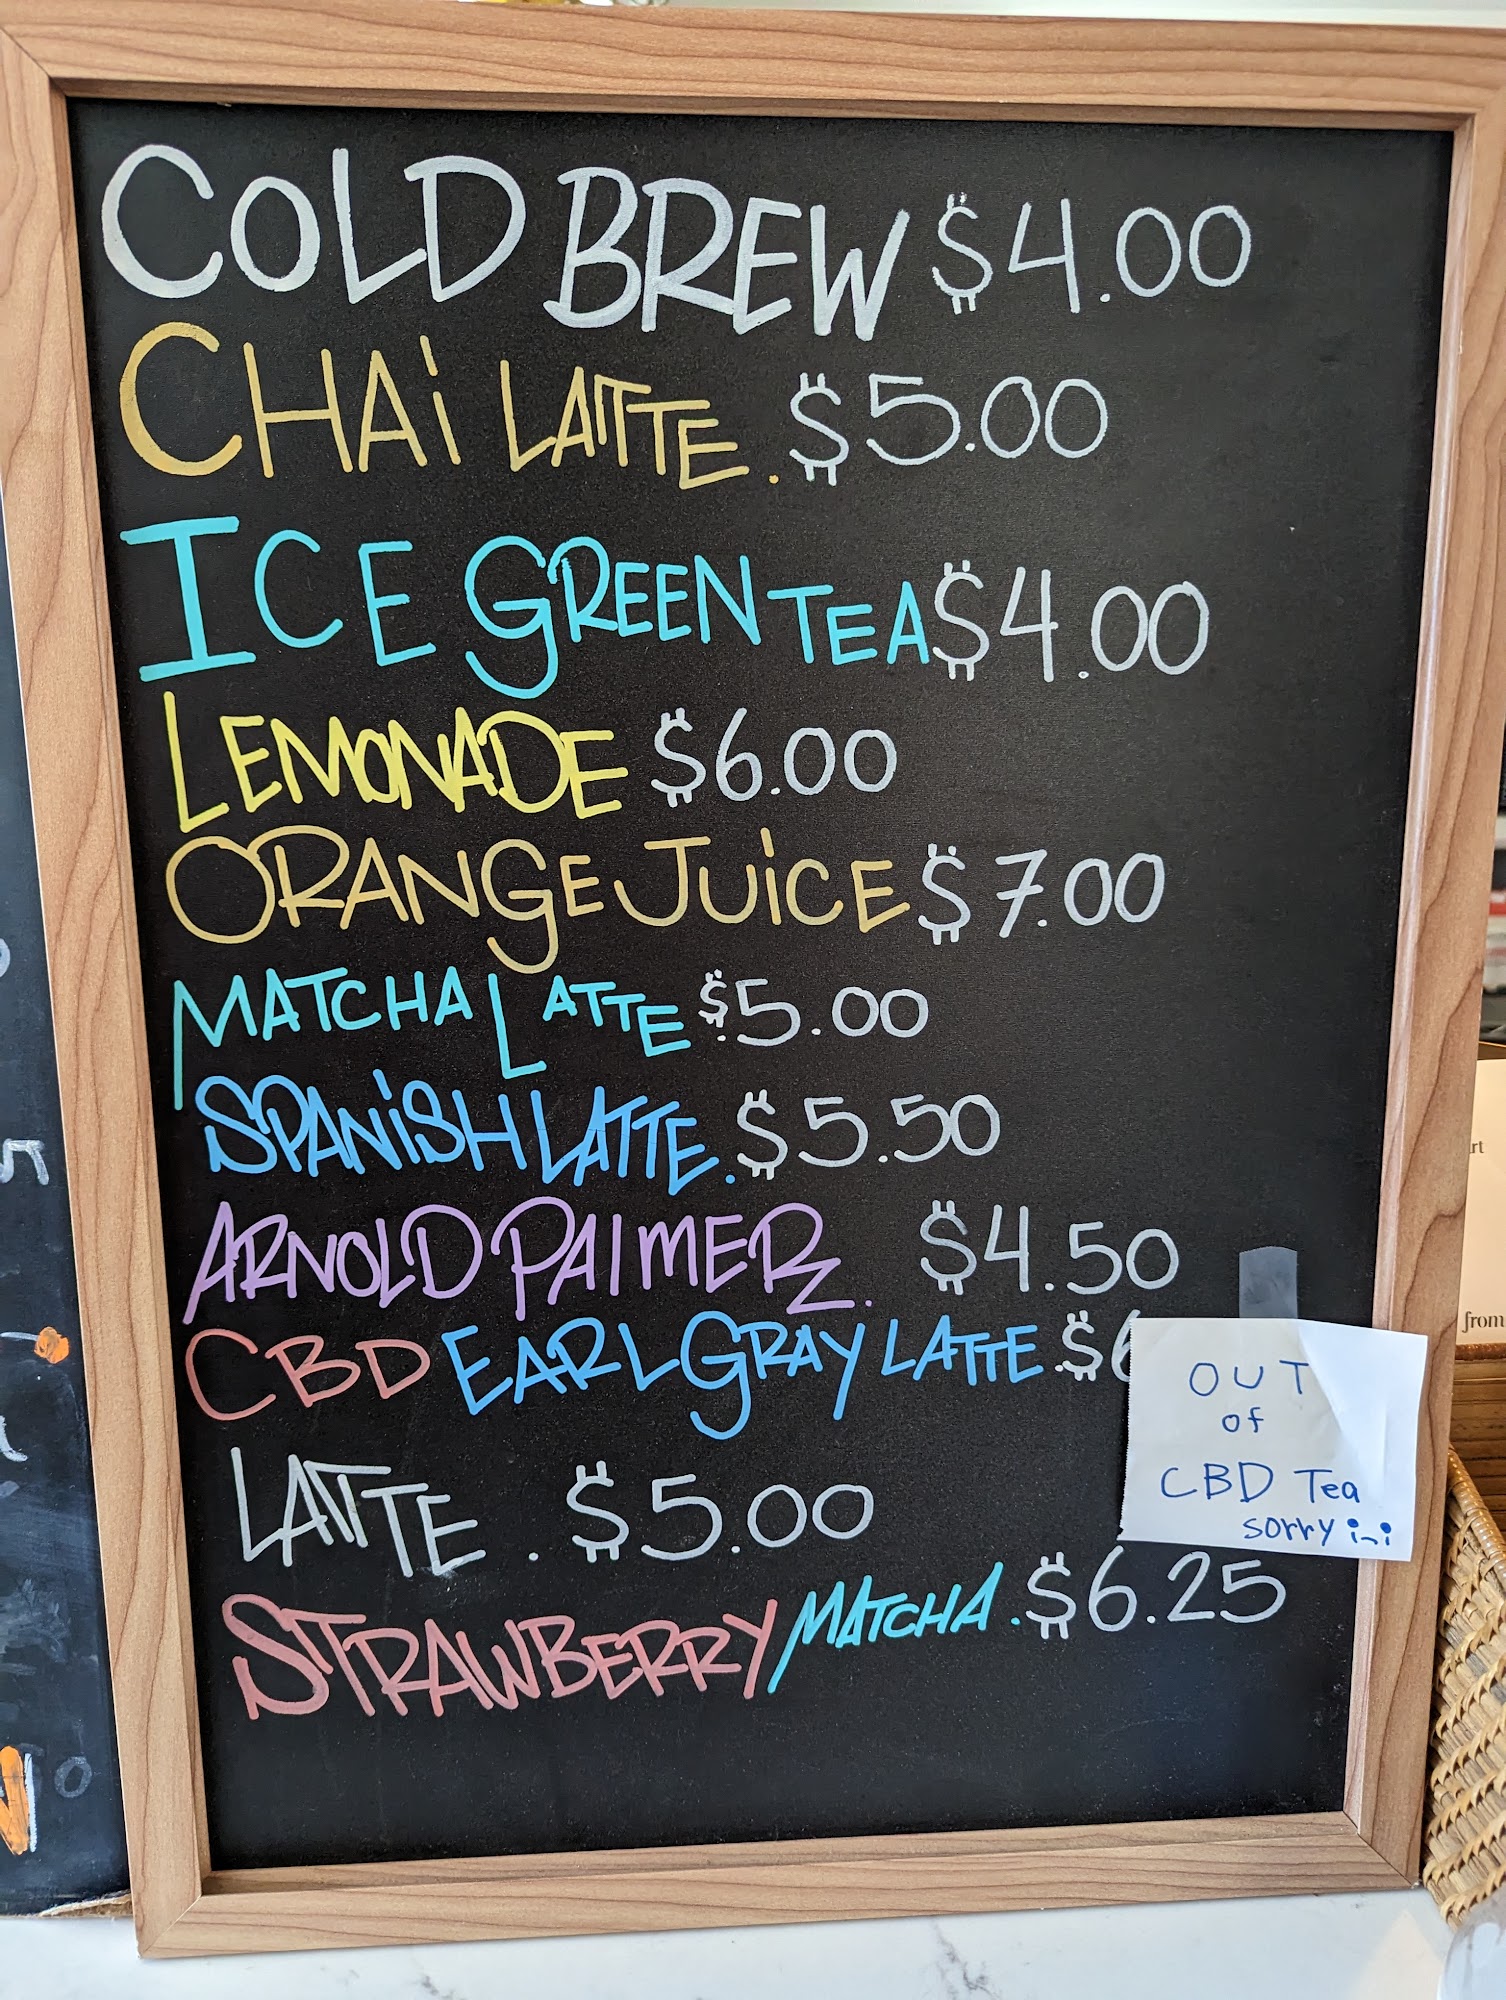 COLD BREW $4.00
CHAi LATTE. $5.00
ICE GREEN TEA $4.00
LEMONADE $6.00
ORANGE JUiCE $7.00
MATCHA LATTE $5.00
SPANiSH LATTE. $5.50
ARNOLD PALMER. $4.50
CBD EARL GRAY LATTE. $6
OUT
of
CBD Tea
sorry
LATTE. $5.00
STRAWBERRY MATCHA. $6.25
from